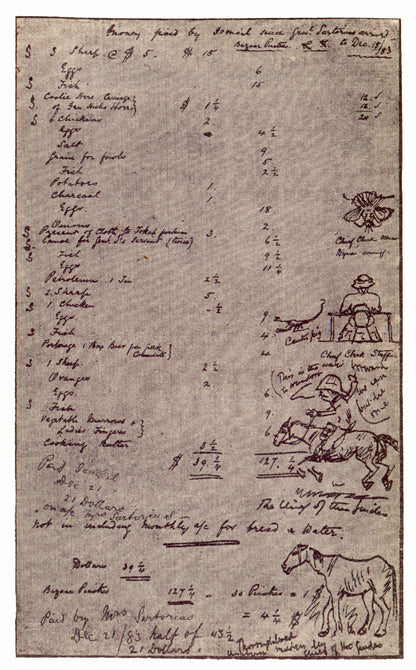 Money paid by Ismail since Genl Sartorius arrived
Bazaar Piastres. to Dec. 18/83
§ 3 Sheep @ $ 5. $ 15
Eggs 6
§ Fish 15
§ Coolie Hire Carriage } 12. S.
§ of Gen Hicks Horse } $ 1 1/4 12. S.
§ 6 Chickens 2. 20 S
Eggs 4 1/2
Salt
Grain for fowls 9
Fish 5
Potatoes 2 1/2
Charcoal 1
Eggs 1 18
Onions 2
§ Present of Cloth to Tokah 3
§ Canoe for Genl S's Servant (twice) 6 1/2
Fish 9 1/2
Eggs 11 1/4
Petroleum 1 Tin 2 1/2
§ 2 Sheep 5
§ 1 Chicken 1/2
Eggs 9
§ Fish 4
Porterage 1 Box Beer } 4
§ 1 Sheep 2 1/2
Oranges 2
Eggs 6
§ Fish 9
Vegetable Marrows & }
Ladies Fingers }
Cooking Butter 3 1/2
$ 39. 1/4 127. 1/4
Chief Clerk
Chief Clerk Staff
This is the way
to
one
Paid Ismail
Dec 21
21 Dollars
on a/c Mrs Sartorius
The Chief of the
not in including Monthly a/c for bread & Water.
Dollars 39 1/4
Bazaar Piastres 127 1/4 - 30 Piastres = 1 $
= 4 1/4 $
Paid by Mrs Sartorius
Dec 21/83 half of 43 1/2
21 Dollars.
Thoroughbred
ridden by
Chief of the Guides